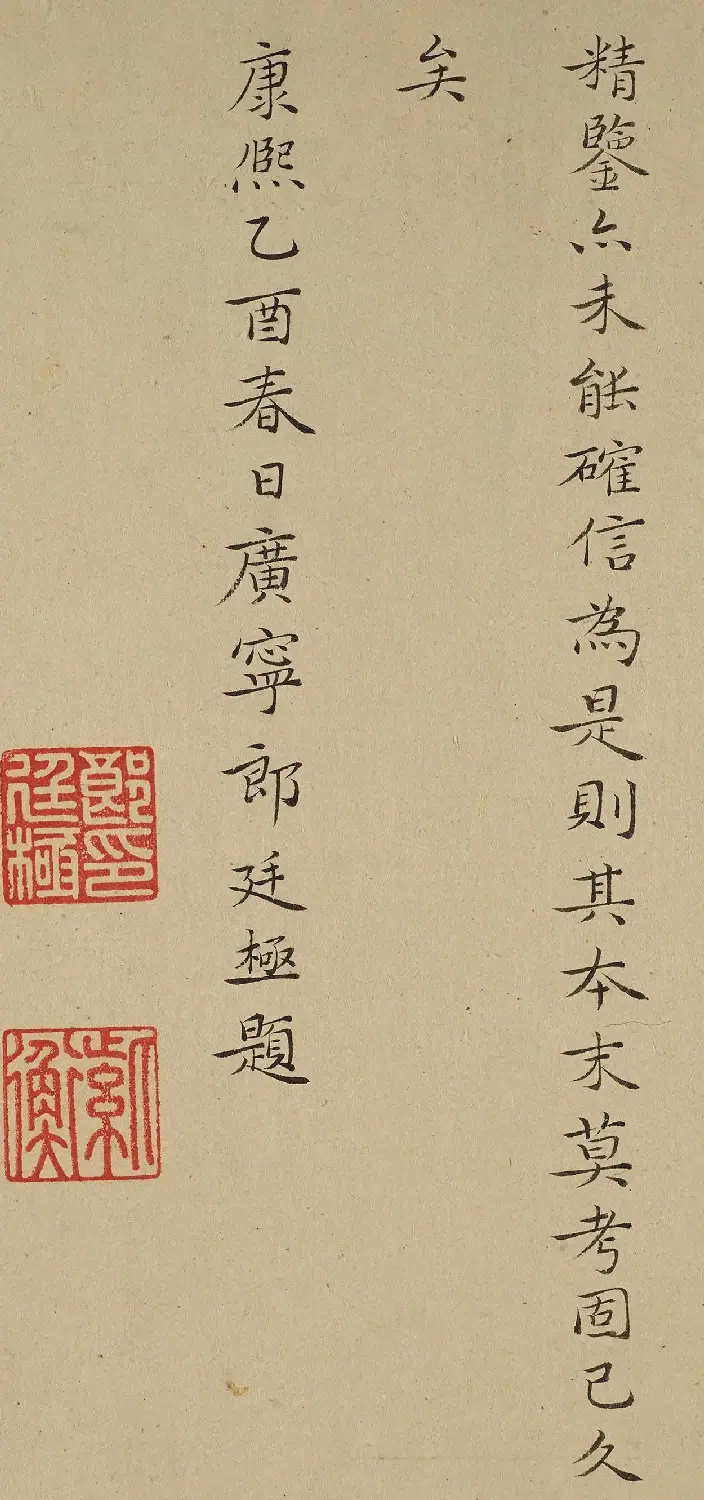 精鑒亦未能確信為是則其本末莫考固已久
矣
康熙乙酉春日廣寧郎廷極題
郎印廷極
紫衡